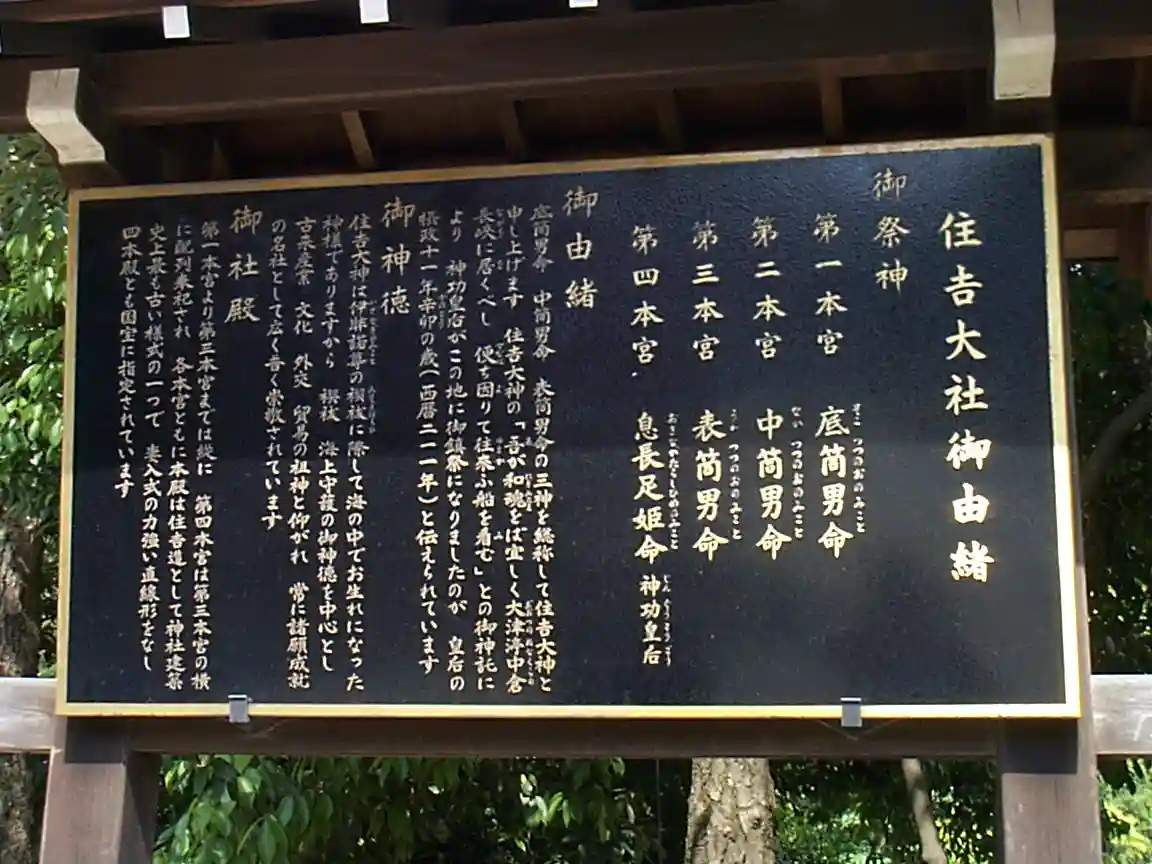 住吉大社御由緒
御祭神
第一本宮 底筒男命
そこつつのおのみこと
第二本宮 中筒男命
第三本宮 表筒男命
第四本宮 息長足姫命 神功皇后
御由緒
底筒男命 中筒男命 表筒男命の三神を総称して住吉大神と
申し上げます 住吉大神の「吾が和魂をば宜しく大津渟中倉
長峡に居くべし 便ち因りて往来ふ船を看む」との御神託に
より 神功皇后がこの地に御鎮祭になりましたのが 皇后の
摂政十一年辛卯の歳(西暦二一一年)と伝えられています
御神徳
住吉大神は伊弉諾尊の禊祓に際して海の中でお生れになった
神様でありますから 禊祓 海上守護の御神徳を中心とし
古来産業 文化 外交 貿易の祖神と仰がれ 常に諸願成就
の名社として広く普く崇敬されています
御社殿
第一本宮より第三本宮までは縦に 第四本宮は第三本宮の横
に配列奉祀され 各本宮ともに本殿は住吉造として神社建築
史上最も古い様式の一つで 妻入式の力強い直線形をなし
四本殿とも国宝に指定されています